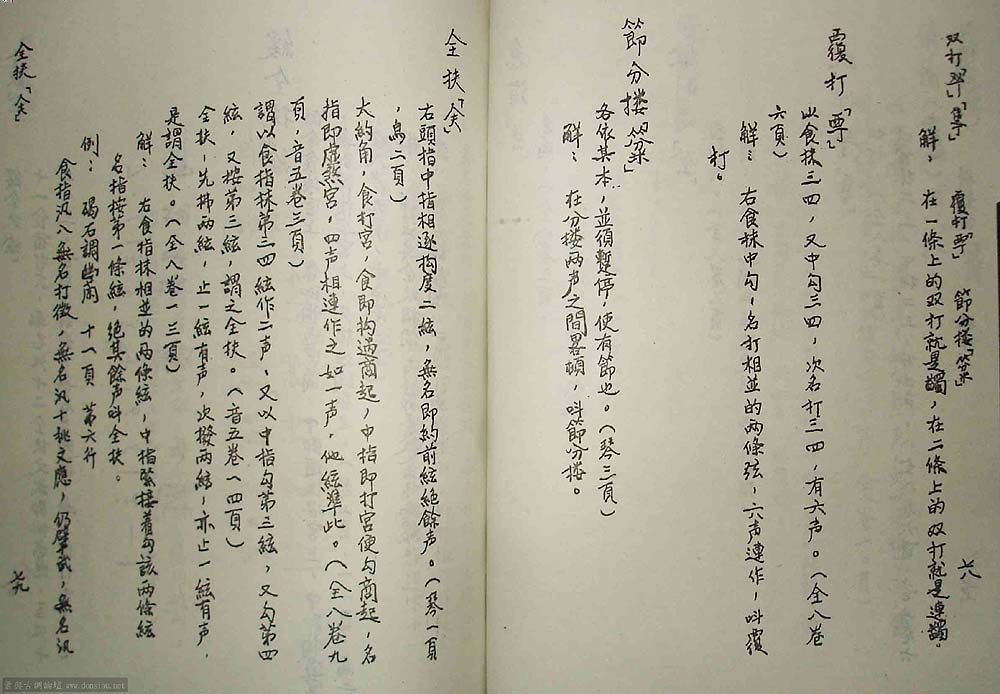 双打「」「」 覆打「」 節分摟「」 七八
解：在一條上的双打就是蠲，在二條上的双打就是連蠲。
覆打「」
此食抹三四，又中勾三四，次名打三四，有六声。（全八卷
六頁）
解：右食抹中勾，名打相並的兩條弦，六声連作，叫覆
打。
節分摟「」
各依其本，並須暫停，使有節也。（琴三頁）
解：在分摟兩声之間畧頓，叫節分摟。
全扶「」
右頭指中指相逐抅度二絃，無名即約前絃絶餘声。（琴一頁
，烏二頁）
大約角，食打宮，食即抅過商起，中指即打宮便勾商起，名
指即虚煞宮，四声相連作之如一声，他絃準此。（全八卷九
頁，音五卷三頁）
謂以食指抹第三四絃作二声，又以中指勾第三絃，又勾第四
絃，又按第三絃，謂之全扶。（音五卷一四頁）
全扶－先拂兩絃，止一絃有声，次撥兩絃，亦止一絃有声，
是謂全扶。（全八卷一三頁）
解：右食指抹相並的两條絃，中指緊接着勾該两條絃
名指按第一條絃，絶其餘声叫全扶。
例：碣石調幽蘭 十一頁 第六行
食指汎八無名打徴，無名汎十挑文應，仍擘武，無名汎
全扶「」 七九
老與古調論壇 www.donsiau.net